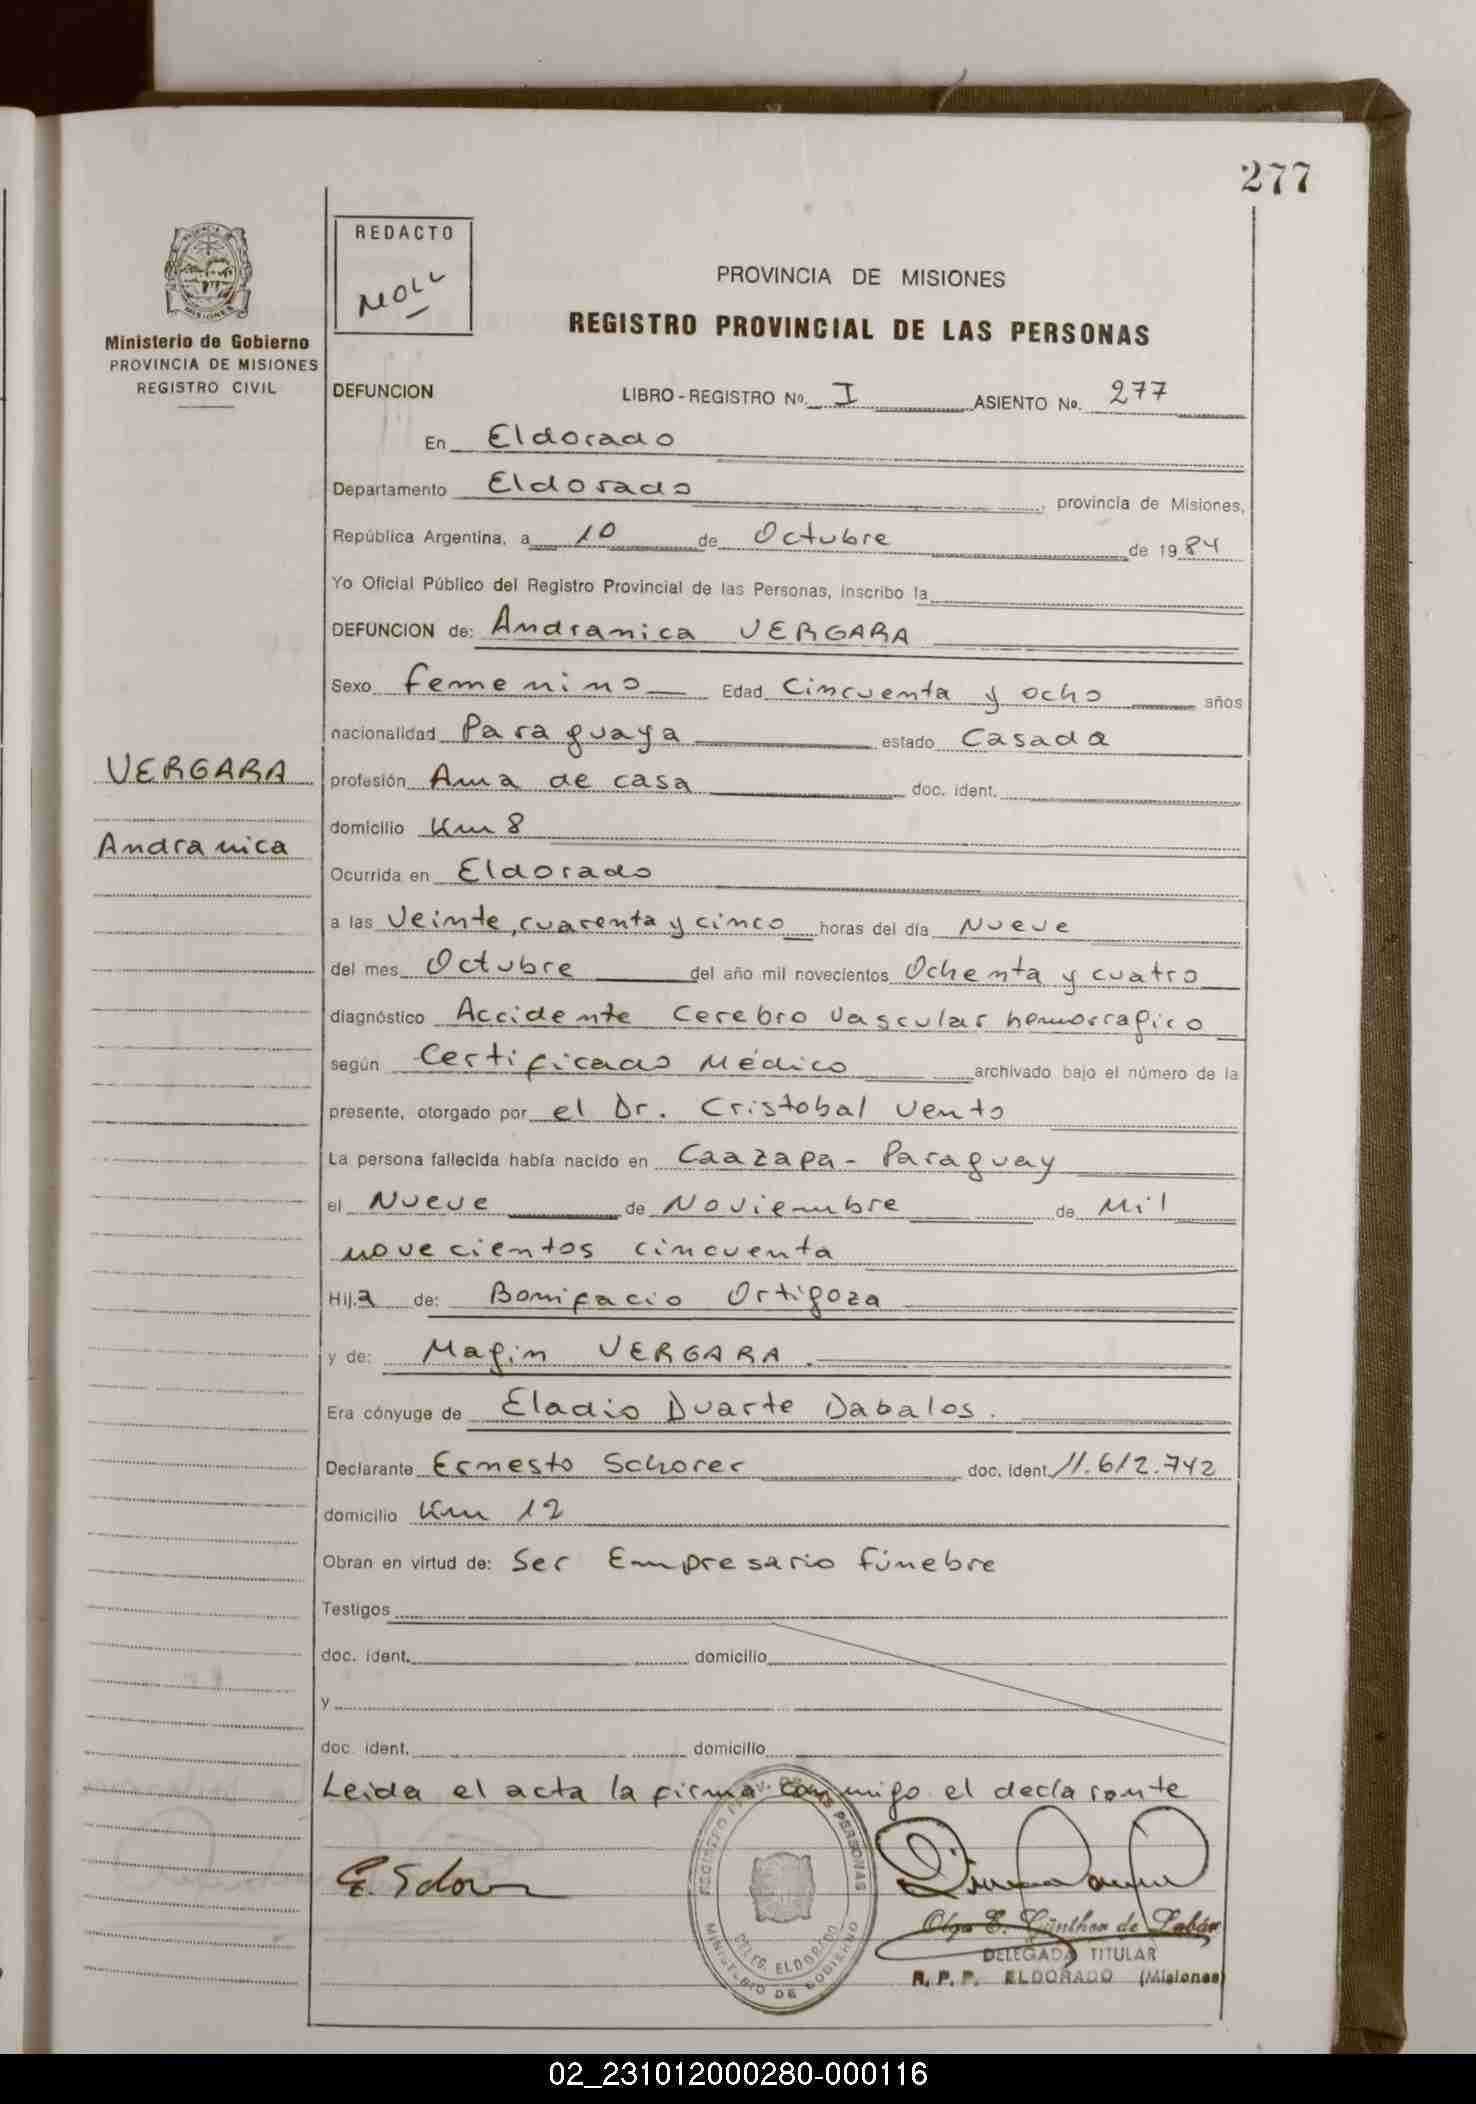 277
REDACTO
MOLL
Ministerio de Gobierno
PROVINCIA DE MISIONES
REGISTRO CIVIL
PROVINCIA DE MISIONES
REGISTRO PROVINCIAL DE LAS PERSONAS
DEFUNCION LIBRO-REGISTRO Nº. I ASIENTO Nº. 277
En Eldorado
Departamento Eldorado, provincia de Misiones,
República Argentina, a 10 de Octubre de 1984
Yo Oficial Público del Registro Provincial de las Personas, inscribo la
DEFUNCION de: Andranica VERGARA
Sexo femenino Edad Cincuenta y ocho años
nacionalidad Paraguaya estado Casada
VERGARA
Andranica
profesión Ama de casa doc. ident.
domicilio Km 8
Ocurrida en Eldorado
a las Veinte, cuarenta y cinco horas del día Nueve
del mes Octubre del año mil novecientos Ochenta y cuatro
diagnóstico Accidente Cerebro Vascular hemorragico
según Certificado Médico archivado bajo el número de la
presente, otorgado por el Dr. Cristobal Vento
La persona fallecida había nacido en Caazapa - Paraguay
el Nueve de Noviembre de Mil
novecientos cincuenta
Hija de: Bonifacio Ortigoza
y de: Magin VERGARA.
Era cónyuge de Eladio Duarte Dabalos.
Declarante Ernesto Schorer doc. ident. 11.612.742
domicilio Km 12
Obran en virtud de: Ser Empresario fúnebre
Testigos
doc. ident. domicilio
y
doc. ident. domicilio
Leida el acta la firma conmigo el declarante
REGISTRO PROV. DE LAS PERSONAS
DELEG. ELDORADO
MINISTERIO DE GOBIERNO
Olga E. Günther de
DELEGADA TITULAR
R. P. P. ELDORADO (Misiones)
02_231012000280-000116